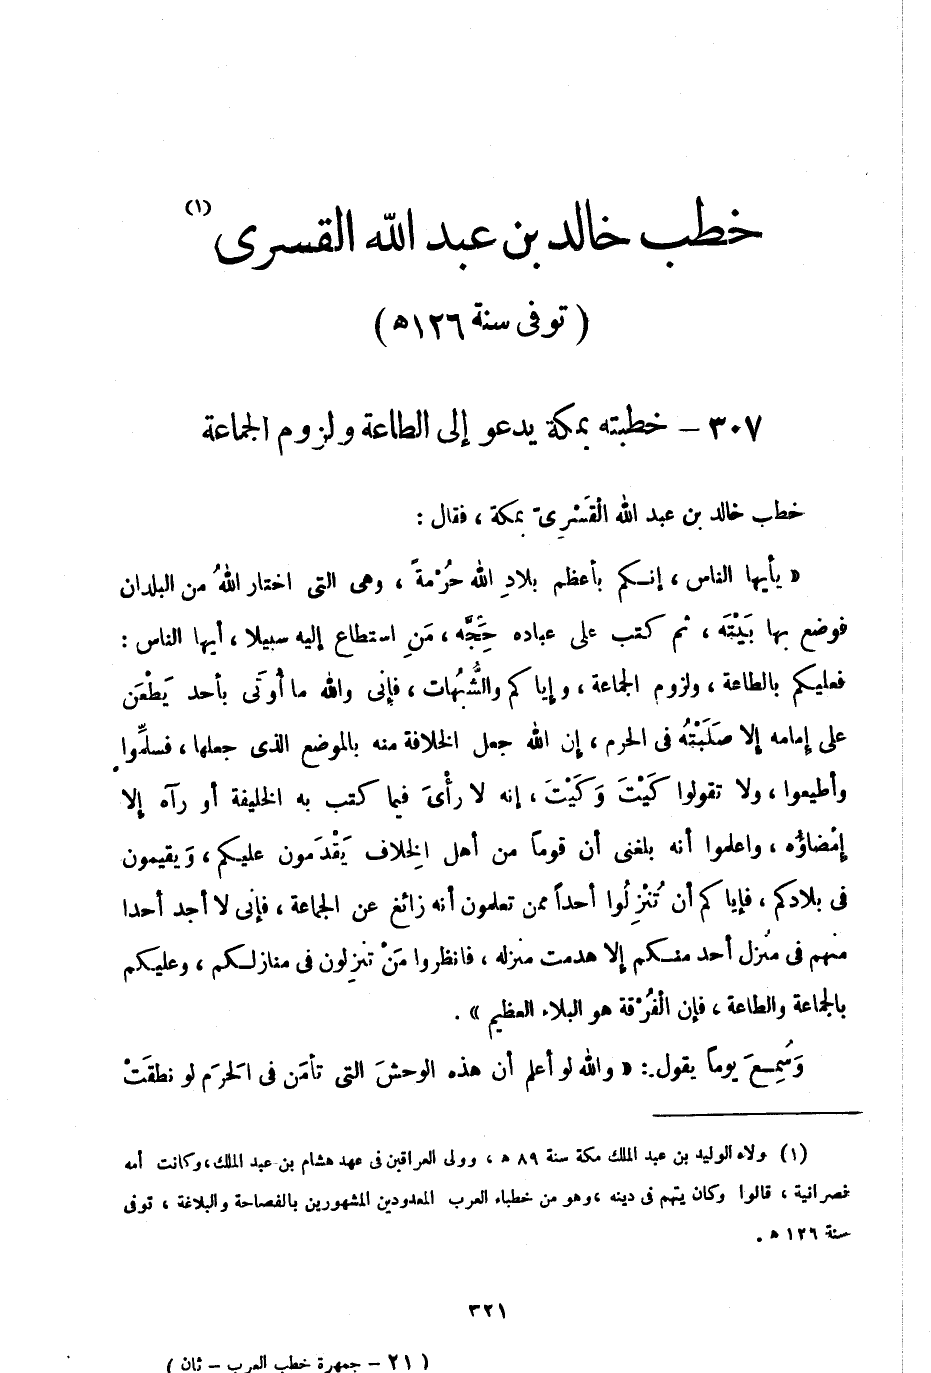 خطب خالد بن عبد الله القسرى (١)
( توفى سنة ١٢٦ ه )
٣٠٧ – خطبته بمكة يدعو إلى الطاعة ولزوم الجماعة
خطب خالد بن عبد الله الْقَسْرِىّ بمكة ، فقال :
« يأيها الناس ، إنكم بأعظم بلادِ الله حُرْمةً ، وهى التى اختار اللهُ من البلدان
فوضع بها بَيْتَه ، ثم كتب على عباده حِجَّه ، مَن استطاع إليه سبيلا ، أيها الناس :
فعليكم بالطاعة ، ولزوم الجماعة ، وإياكم والشُّبُهات ، فإنى والله ما أُوتَى بأحد يَطْعَن
على إمامه إلا صَلَبْتُه فى الحرم ، إن الله جعل الخلافة منه بالموضع الذى جعلها ، فسلِّموا
وأطيعوا ، ولا تقولوا كَيْتَ وَكَيْتَ ، إنه لا رأْىَ فيما كتب به الخليفة أو رآه إلا
إمْضاؤُه ، واعلموا أنه بلغنى أن قوماً من أهل الِخلاف يَقْدَمون عليكم ، وَيقيمون
فى بلادكم ، فإياكم أن تُنْزِلُوا أحداً ممن تعلمون أنه زائغ عن الجماعة ، فإنى لا أجد أحدا
منهم فى منزل أحد منكم إلا هدمت منزله ، فانظروا مَنْ تنزِلون فى منازلكم ، وعليكم
بالجماعة والطاعة ، فإن الْفُرْقة هو البلاء العظيم » .
وَسُمِعَ يوماً يقول : « والله لو أعلم أن هذه الوحشَ التى تأمَن فى الَحرَم لو نطقَتْ
(١) ولاه الوليد بن عبد الملك مكة سنة ٨٩ ه ، وولى العراقين فى عهد هشام بن عبد الملك ، وكانت أمه
نصرانية ، قالوا وكان يتهم فى دينه ، وهو من خطباء العرب المعدودين المشهورين بالفصاحة والبلاغة ، توفى
سنة ١٢٦ ه .
٣٢١
( ٢١ – جمهرة خطب العرب – ثان )